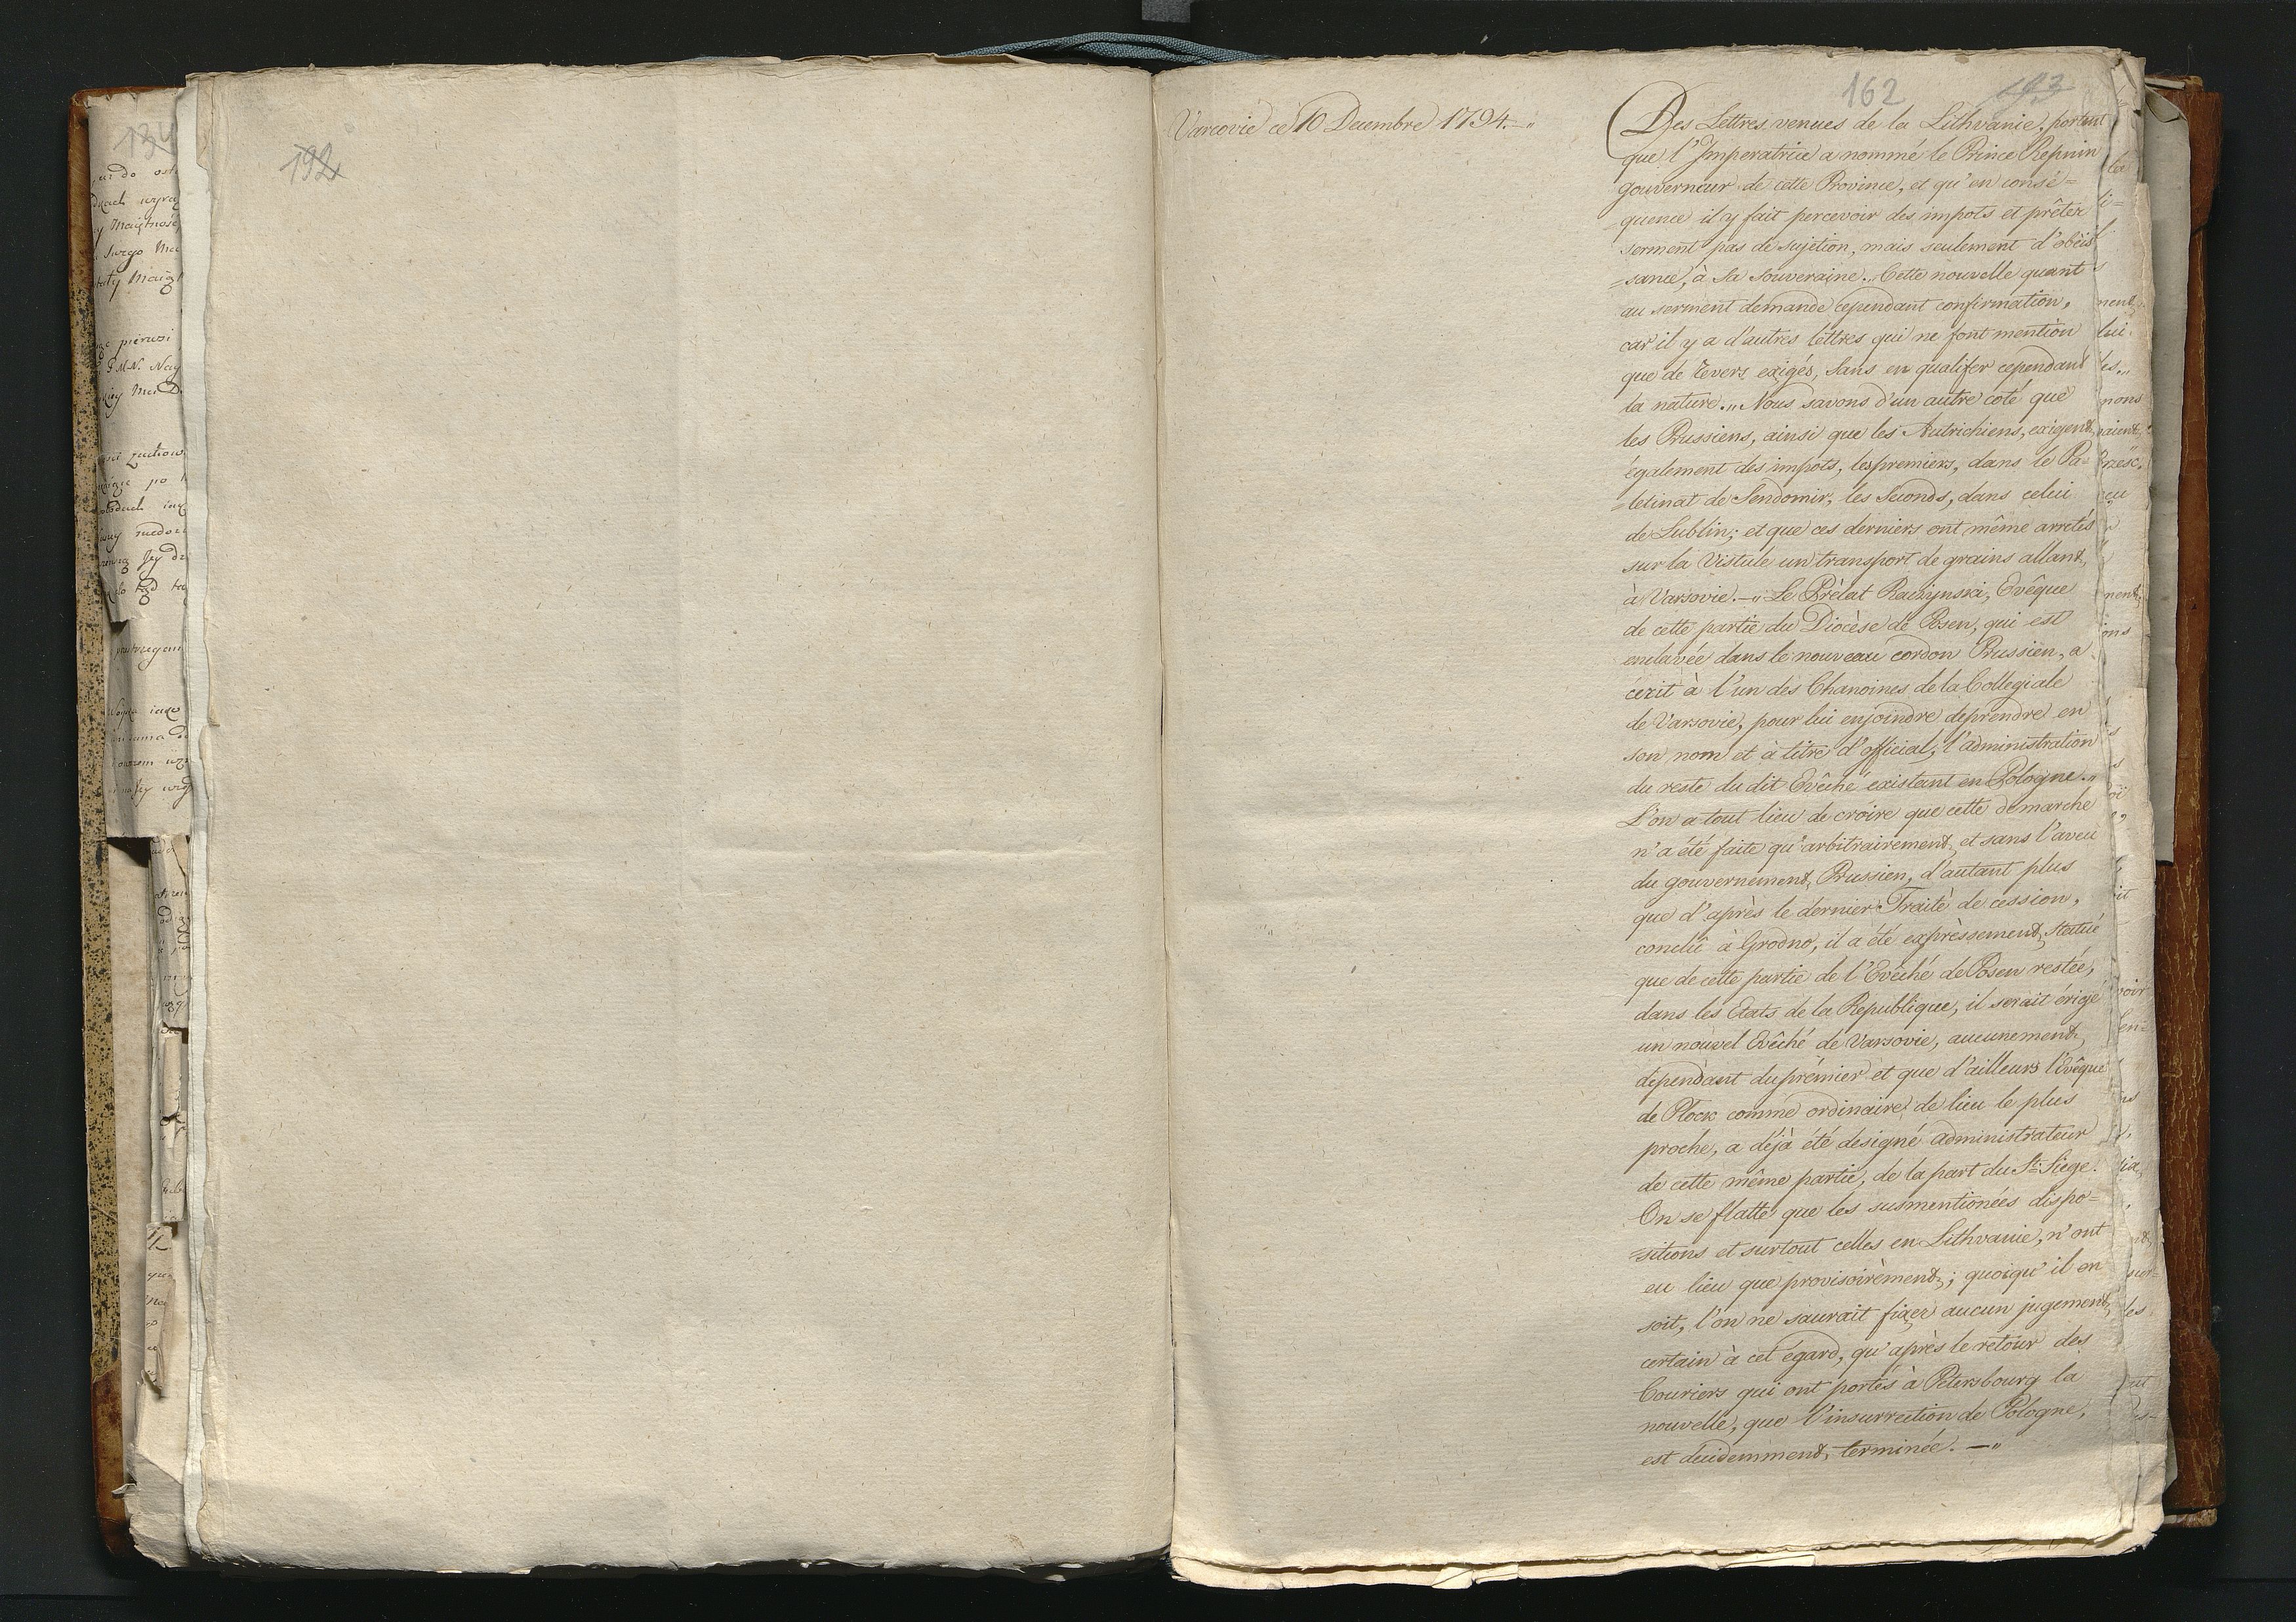 192
162
193
Varsovie ce 10 Decembre 1794.—„
Des Lettres venues de la Lithvanie, portent
que l'Imperatrice a nommé le Prince Repnin
gouverneur de cette Province, et qu'en consé=
=quence il y fait percevoir des impots et prêter
serment pas de sujetion, mais seulement d'obéis
=sance, à Sa Souveraine.„ Cette nouvelle quant
au serment demande cependant confirmation,
car il y a d'autres lettres qui ne font mention
que de revers exigés, sans en qualifer cependant
la nature.„ Nous savons d'un autre coté que
les Prussiens, ainsi que les Autrichiens, exigent
également des impots, les premiers, dans le Pa=
=letinat de Sendomir, les Seconds, dans celui
de Lublin; et que ces derniers ont même arretés
sur la Vistule un transport de grains allant
à Varsovie.—„ Le Prèlat Raczynski, Evêque
de cette partie du Diocèse de Posen, qui est
enclavée dans le nouveau cordon Prussien, a
écrit à l'un des Chanoines de la Collegiale
de Varsovie, pour lui enjoindre de prendre en
son nom et à titre d'official, l'administration
du reste du dit Evêché existant en Pologne.„
L'on a tout lieu de croire que cette demarche
n'a été faite qu'arbitrairement et sans l'aveu
du gouvernement Prussien, d'autant plus
que d'après le dernier Traité de cession,
conclû à Grodno, il a été expressement statué
que de cette partie de l'Evêché de Posen restée,
dans les Etats de la Republique, il serait érigé
un nouvel Evêché de Varsovie, aucunement
dépendant du prémier et que d'ailleurs l'Evêque
de Plock comme ordinaire de lieu le plus
proche, a déjà été designé administrateur
de cette même partie, de la part du St: Siege.
On se flatte que les susmentionées dispo=
=sitions et surtout celles en Lithvanie, n'ont
eu lieu que provisoirèment; quoiqu'il en
soit, l'on ne saurait fixer aucun jugement
certain à cet égard, qu'après le retour des
Couriers qui ont portés à Petersbourg la
nouvelle, que l'insurrection de Pologne,
est decidemment terminée.—„